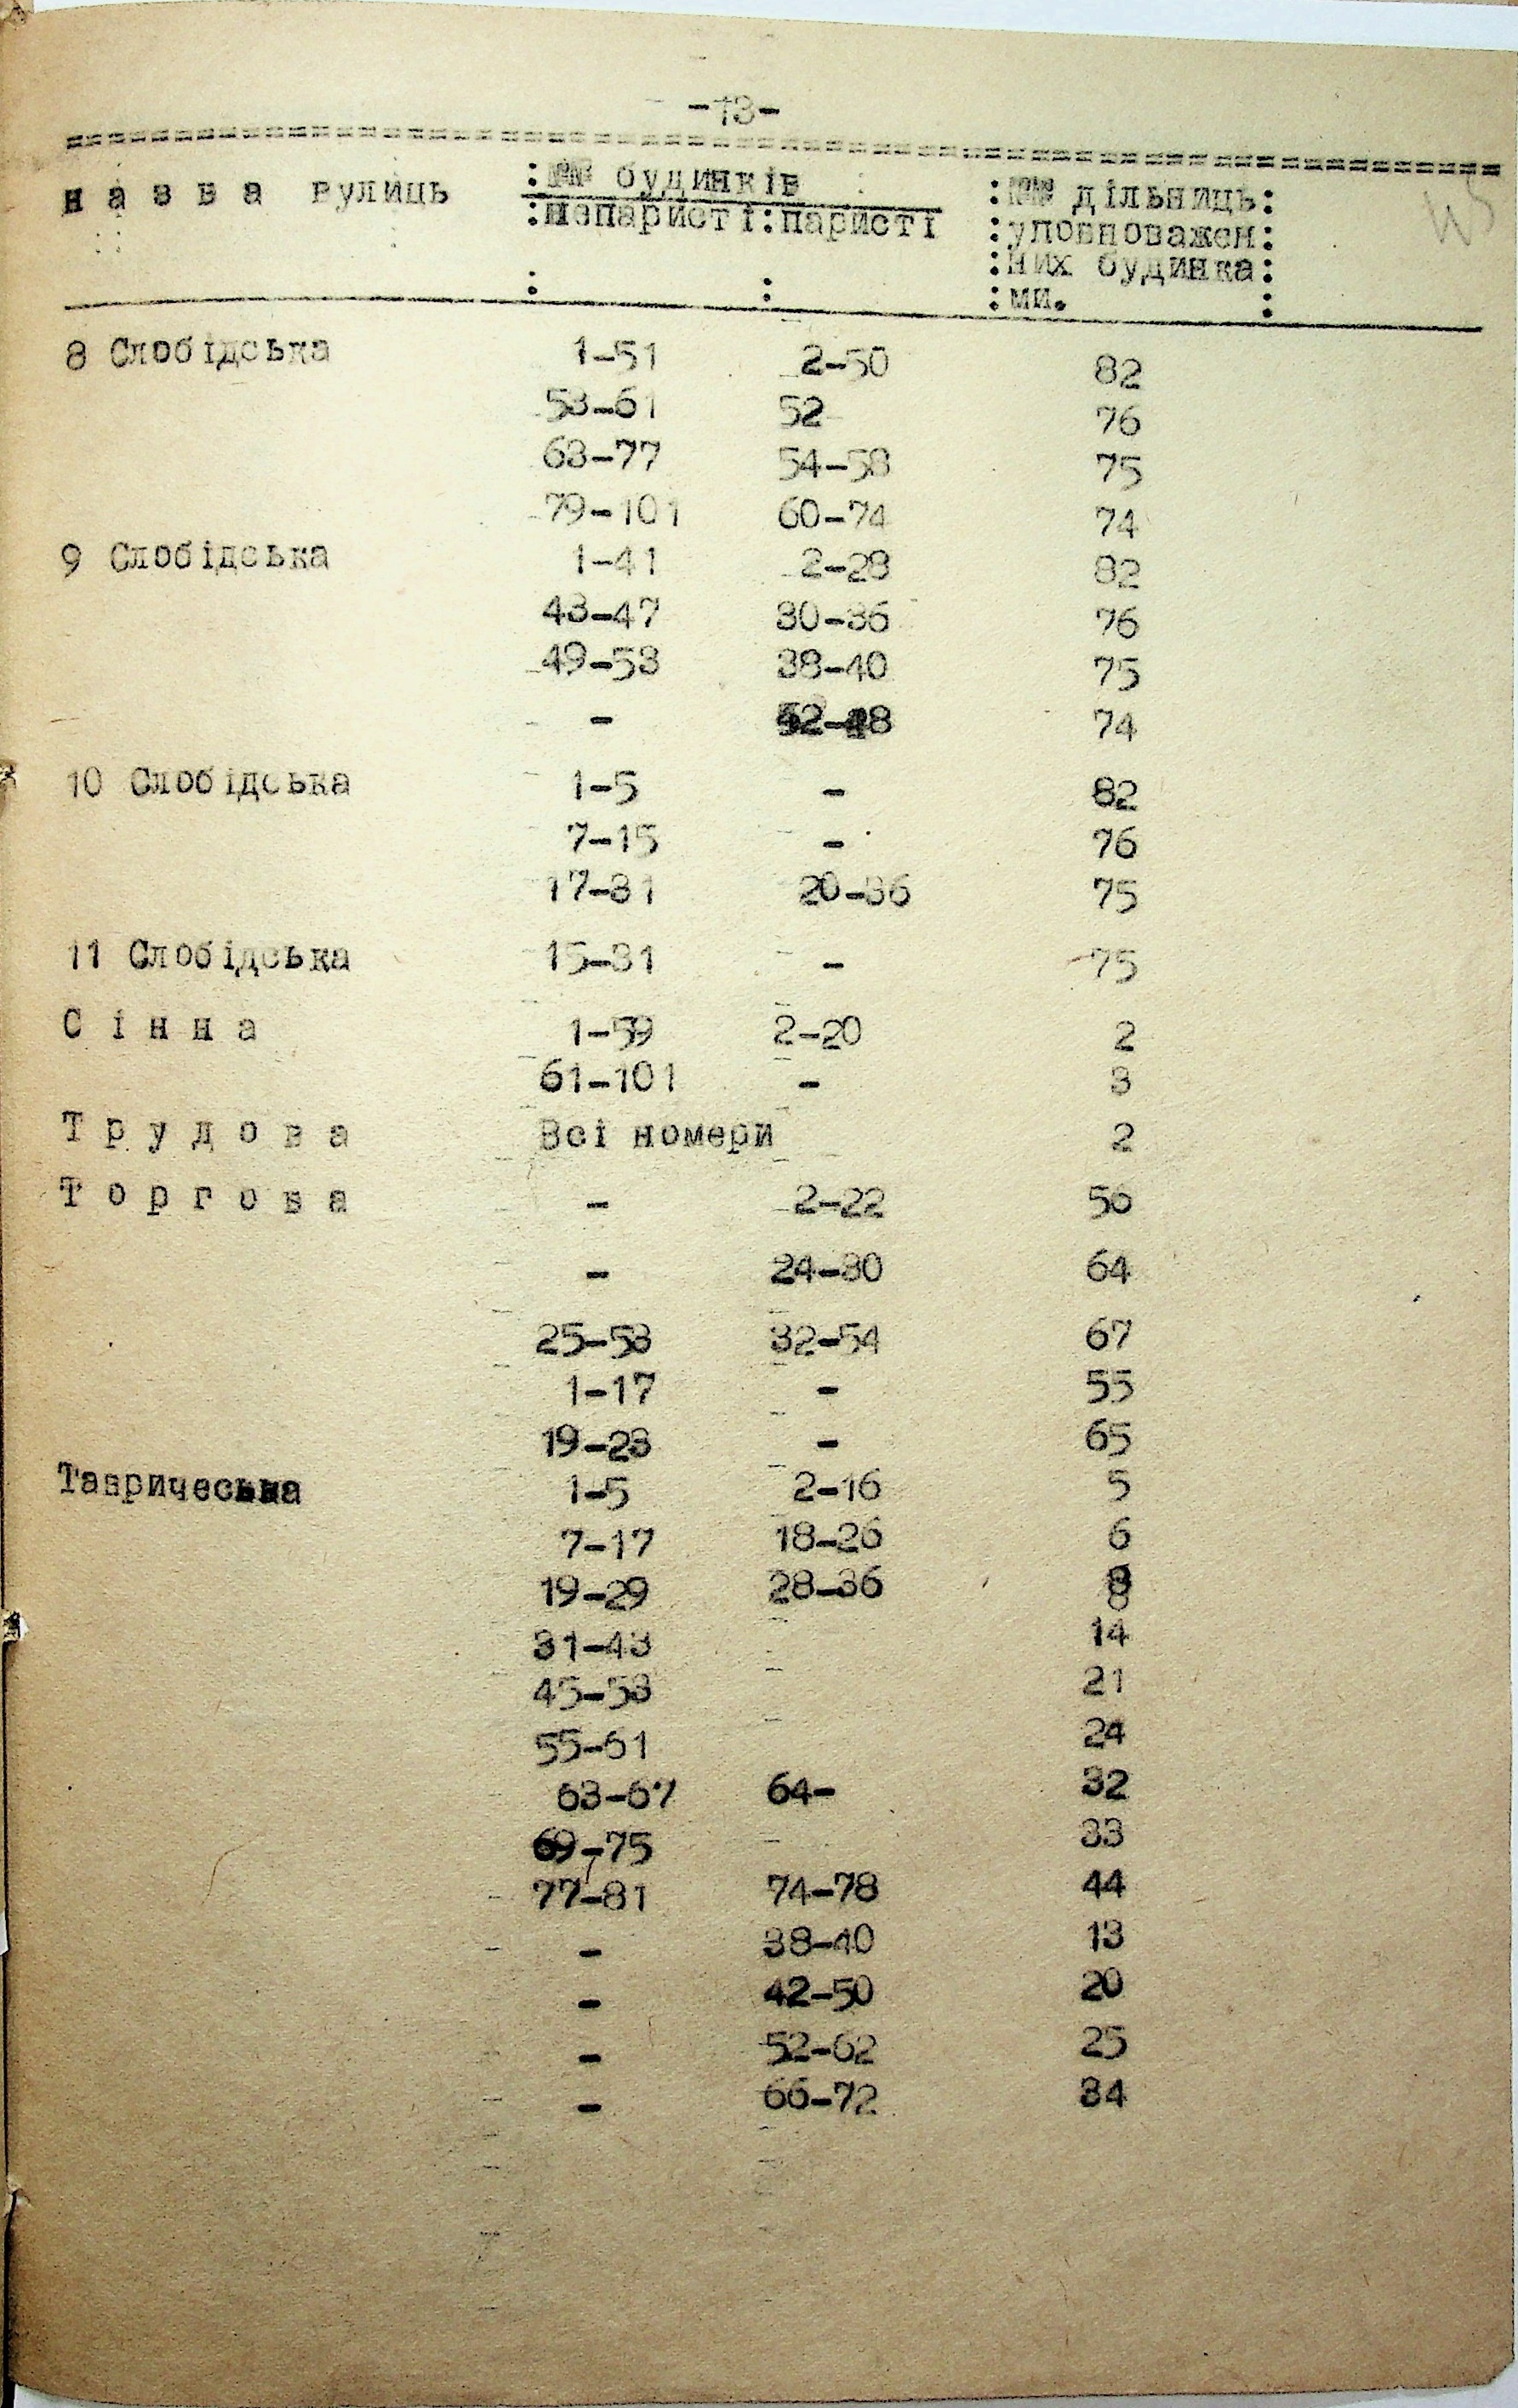 -13-
назва вулиць :№№ будинків :№№ дільниць:
:непаристі:паристі :уповноважен:
:них будинка:
:ми. :
8 Слобідська 1-51 2-50 82
53-61 52 76
63-77 54-58 75
79-101 60-74 74
9 Слобідська 1-41 2-28 82
43-47 30-36 76
49-53 38-40 75
- 42-48 74
10 Слобідська 1-5 - 82
7-15 - 76
17-31 20-36 75
11 Слобідська 15-31 - 75
Сінна 1-59 2-20 2
61-101 - 3
Трудова Всі номери 2
Торгова - 2-22 56
- 24-30 64
25-53 32-54 67
1-17 - 55
19-23 - 65
Тавричеська 1-5 2-16 5
7-17 18-26 6
19-29 28-36 8
31-43 14
45-53 21
55-61 24
63-67 64- 32
69-75 33
77-81 74-78 44
- 38-40 13
- 42-50 20
- 52-62 25
- 66-72 34